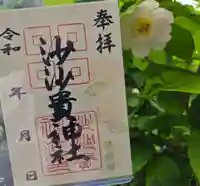 奉拝
沙沙貴神社
令和 年 月 日